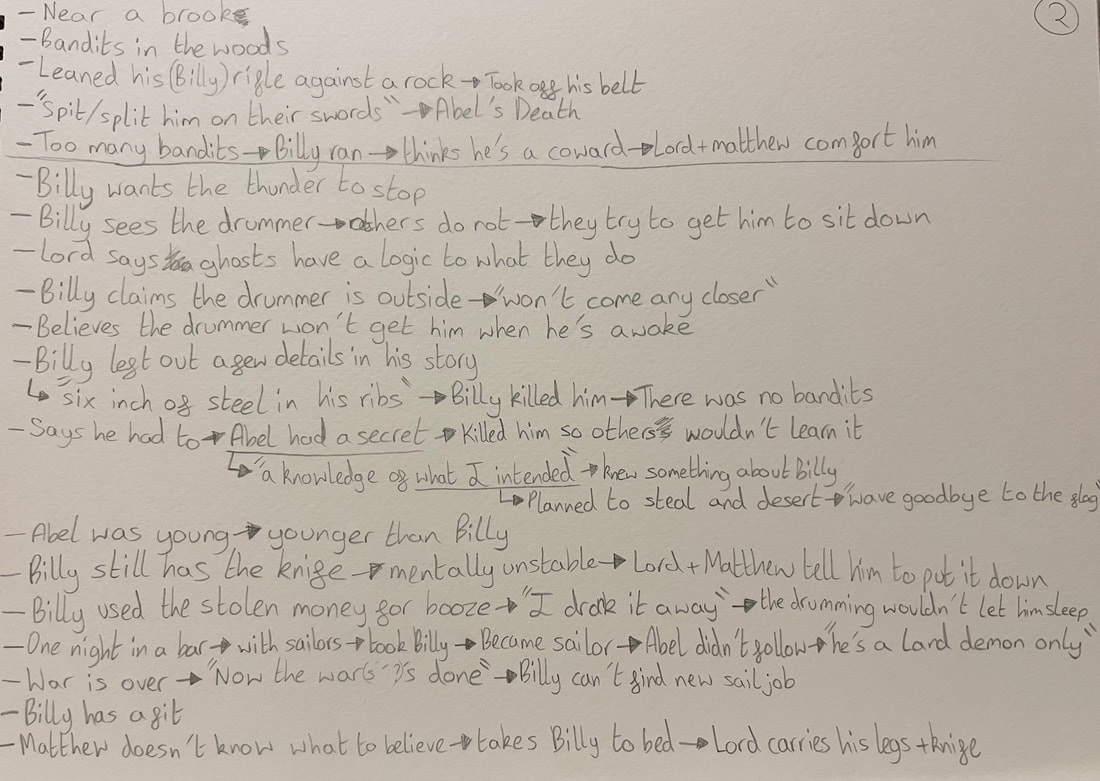 ②
- Near a brook
- Bandits in the woods
- Leaned his (Billy) rifle against a rock → Took off his belt
- "Spit/split him on their swords" → Abel's Death
- Too many bandits → Billy ran → thinks he's a coward → Lord + matthew comfort him
- Billy wants the thunder to stop
- Billy sees the drummer → others do not → they try to get him to sit down
- Lord says ghosts have a logic to what they do
- Billy claims the drummer is outside → "won't come any closer"
- Believes the drummer won't get him when he's awake
- Billy left out a few details in his story
↳ "six inch of steel in his ribs" → Billy killed him → There was no bandits
- Says he had to → Abel had a secret → Killed him so others wouldn't learn it
↳ "a knowledge of what I intended" → knew something about Billy
↳ Planned to steal and desert → "wave goodbye to the flag"
- Abel was young → younger than Billy
- Billy still has the knife → mentally unstable → Lord + Matthew tell him to put it down
- Billy used the stolen money for booze → "I drank it away" → the drumming wouldn't let him sleep
- One night in a bar → with sailors → took Billy → Became sailor → Abel didn't follow → "he's a land demon only"
- War is over → "Now the war(s)?'s done" → Billy can't find new sail job
- Billy has a fit
- Matthew doesn't know what to believe → takes Billy to bed → Lord carries his legs + knife